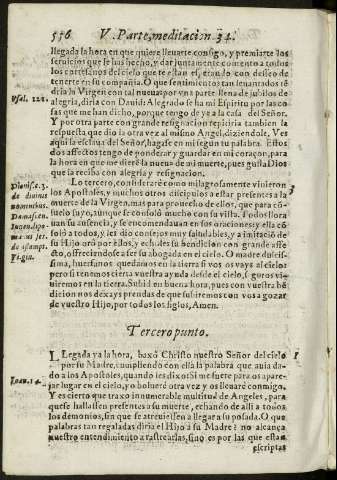 556 V. Parte, meditacion. 34.
llegada la hora en que quiere lleuarte consigo, y premiarte los
seruicios que le has hecho, y dar juntamente contento a todos
los cortesanos del cielo que te estan esperando con desseo de
tenerte en su compañia. O que sentimientos tan leuantados tẽ
dria la Virgen con tal nueua: por vna parte llena de jubilos de
alegria, diria con Dauid: Alegrado se ha mi Espiritu por las co
sas que me han dicho, porque tengo de yr a la casa del Señor.
Y por otra parte con grande resignacion repitiria tambien la
respuesta que dio la otra vez al mismo Angel, diziendole, Ves
aqui la esclaua del Señor, hagase en mi segun tu palabra. Estos
dos affectos tengo de ponderar y guardar en mi coraçon, para
la hora en que me diere la nueua de mi muerte, pues gusta Dios
que la reciba con alegria y resignacion.
Psal. 121.
Lo tercero, considerarè como milagrosamente vinieron
los Apostoles, y muchos otros discipulos a estar presentes a la
muerte de la Virgen, mas para prouecho de ellos, que para cõ-
suelo suyo, aunque se consolò mucho con su vista. Todos llora
uan su ausencia, y se encomendauan en sus oraciones: y ella cõ
solò a todos, y les dio consejos muy saludables, y a imitaciõ de
su Hijo orò por ellos, y echoles su bendicion con grande affe-
cto, offreciendose a ser su abogada en el cielo. O madre dulcis-
sima, huerfanos quedamos en la tierra si vos os vays al cielo:
pero si tenemos cierta vuestra ayuda desde el cielo, seguros vi-
uiremos en la tierra. Subid en buena hora, pues con vuestra bẽ
dicion nos dexays prendas de que subiremos con vos a gozar
de vuestro Hijo, por todos los siglos, Amen.
3
Dionis. c. 3.
de diuinis
nominibus.
Damascen.
Tercero punto.
Llegada ya la hora, baxò Christo nuestro Señor del cielo
por su Madre, cumpliendo con ella la palabra que auia da-
do a los Apostoles, quando les dixo: Si me fuere para os apare-
jar lugar en el cielo, yo boluerè otra vez y os lleuarè conmigo.
Y es cierto que traxo innumerable multitud de Angeles, para
que se hallassen presentes a su muerte, echando de alli a todos
los demonios, sin que se atreuiessen a llegar a su posada. O que
palabras tan regaladas diria el Hijo a su Madre: no alcança
nuestro entendimiento a rastrearlas, sino es por las que estan
1
Ioan. 14.
escriptas